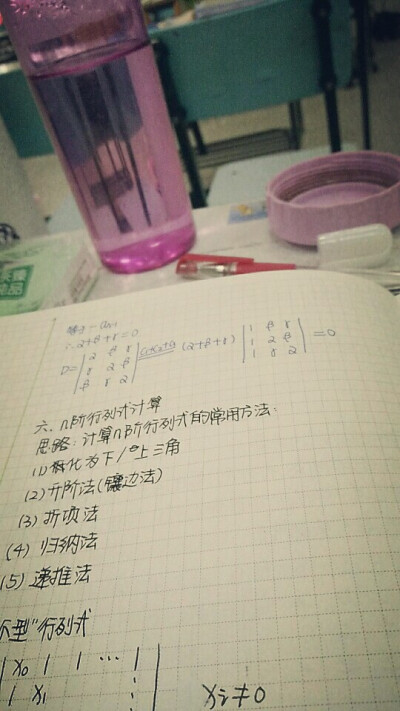 ∴α+β+γ=0
D=|α β γ; γ α β; β γ α| c₁+c₂+c₃ (α+β+γ) |1 β γ; 1 α β; 1 γ α| =0
六、n阶行列式计算
思路:计算n阶行列式的常用方法:
(1) 化为下/上三角
(2) 升阶法(镶边法)
(3) 折项法
(4) 归纳法
(5) 递推法
型"行列式
| x₀ 1 1 … 1 |
| 1 x₁ ⋮ | xᵢ≠0
纯品